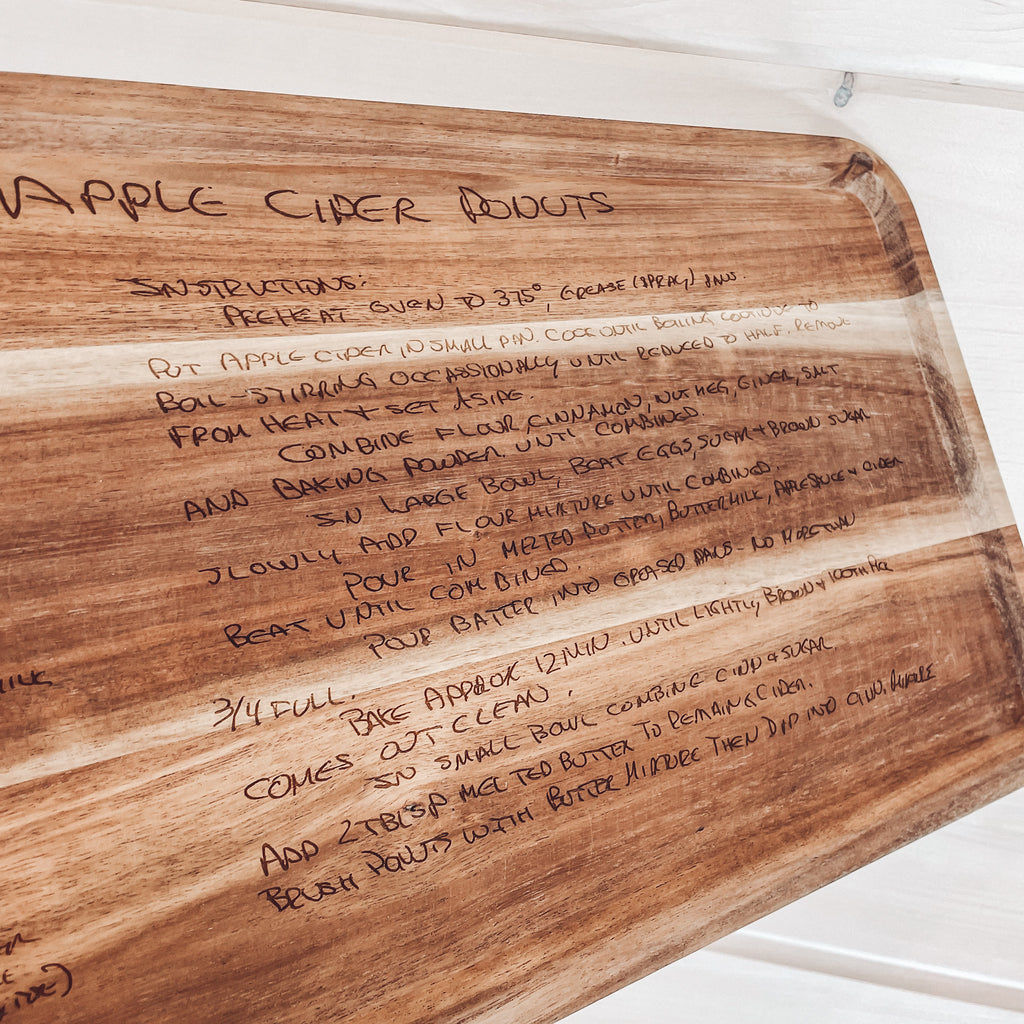 APPLE CIDER DONUTS
INSTRUCTIONS:
PREHEAT OVEN TO 375°, GREASE (SPRAY) PANS.
PUT APPLE CIDER IN SMALL PAN. COOK UNTIL BOILING CONTINUE TO
BOIL-STIRRING OCCASSIONALLY UNTIL REDUCED TO HALF. REMOVE
FROM HEAT + SET ASIDE.
COMBINE FLOUR, CINNAMON, NUTMEG, GINER, SALT
AND BAKING POWDER. UNTI COMBINED.
IN LARGE BOWL, BEAT EGGS, SUGAR + BROWN SUGAR
SLOWLY ADD FLOUR MIXTURE UNTIL COMBINED.
POUR IN MELTED BUTTER, BUTTERMILK, APPLESAUCE + CIDER
BEAT UNTIL COMBINED.
POUR BATTER INTO GREASED PANS - NO MORE THAN
3/4 FULL.
BAKE APPROX 12 MIN. UNTIL LIGHTLY BROWN + TOOTH PICK
COMES OUT CLEAN.
IN SMALL BOWL COMBINE CINN + SUGAR.
ADD 2 TBLSP MELTED BUTTER TO REMAING CIDER.
BRUSH DONUTS WITH BUTTER MIXTURE THEN DIP INTO CINN. MIXTURE